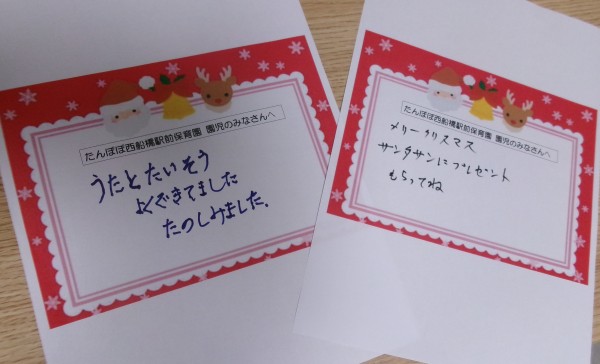 たんぽぽ西船橋駅前保育園 園児のみなさんへ
うたとたいそう
よくできてました
たのしみました。
たんぽぽ西船橋駅前保育園 園児のみなさんへ
メリークリスマス
サンタサンにプレゼント
もらってね